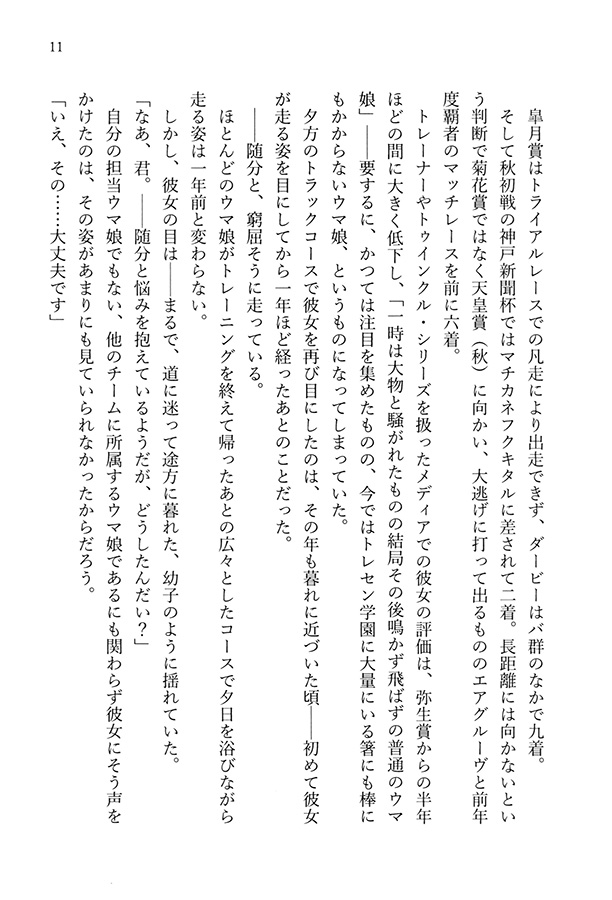 11
皐月賞はトライアルレースでの凡走により出走できず、ダービーはバ群のなかで九着。
そして秋初戦の神戸新聞杯ではマチカネフクキタルに差されて二着。長距離には向かないとい
う判断で菊花賞ではなく天皇賞（秋）に向かい、大逃げに打って出るもののエアグルーヴと前年
度覇者のマッチレースを前に六着。
トレーナーやトゥインクル・シリーズを扱ったメディアでの彼女の評価は、弥生賞からの半年
ほどの間に大きく低下し、「一時は大物と騒がれたものの結局その後鳴かず飛ばずの普通のウマ
娘」――要するに、かつては注目を集めたものの、今ではトレセン学園に大量にいる箸にも棒に
もかからないウマ娘、というものになってしまっていた。
夕方のトラックコースで彼女を再び目にしたのは、その年も暮れに近づいた頃――初めて彼女
が走る姿を目にしてから一年ほど経ったあとのことだった。
――随分と、窮屈そうに走っている。
ほとんどのウマ娘がトレーニングを終えて帰ったあとの広々としたコースで夕日を浴びながら
走る姿は一年前と変わらない。
しかし、彼女の目は――まるで、道に迷って途方に暮れた、幼子のように揺れていた。
「なあ、君。――随分と悩みを抱えているようだが、どうしたんだい？」
自分の担当ウマ娘でもない、他のチームに所属するウマ娘であるにも関わらず彼女にそう声を
かけたのは、その姿があまりにも見ていられなかったからだろう。
「いえ、その……大丈夫です」